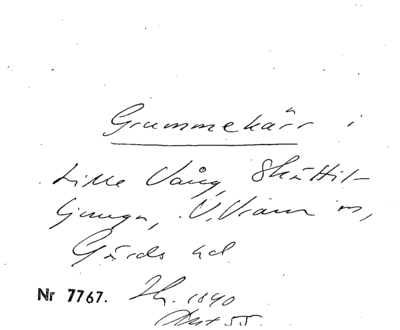 Grummekärr i
Lille Vång, Skättil-
ljunga, V. Vram sn,
Gärds hd
Nr 7767. 1840